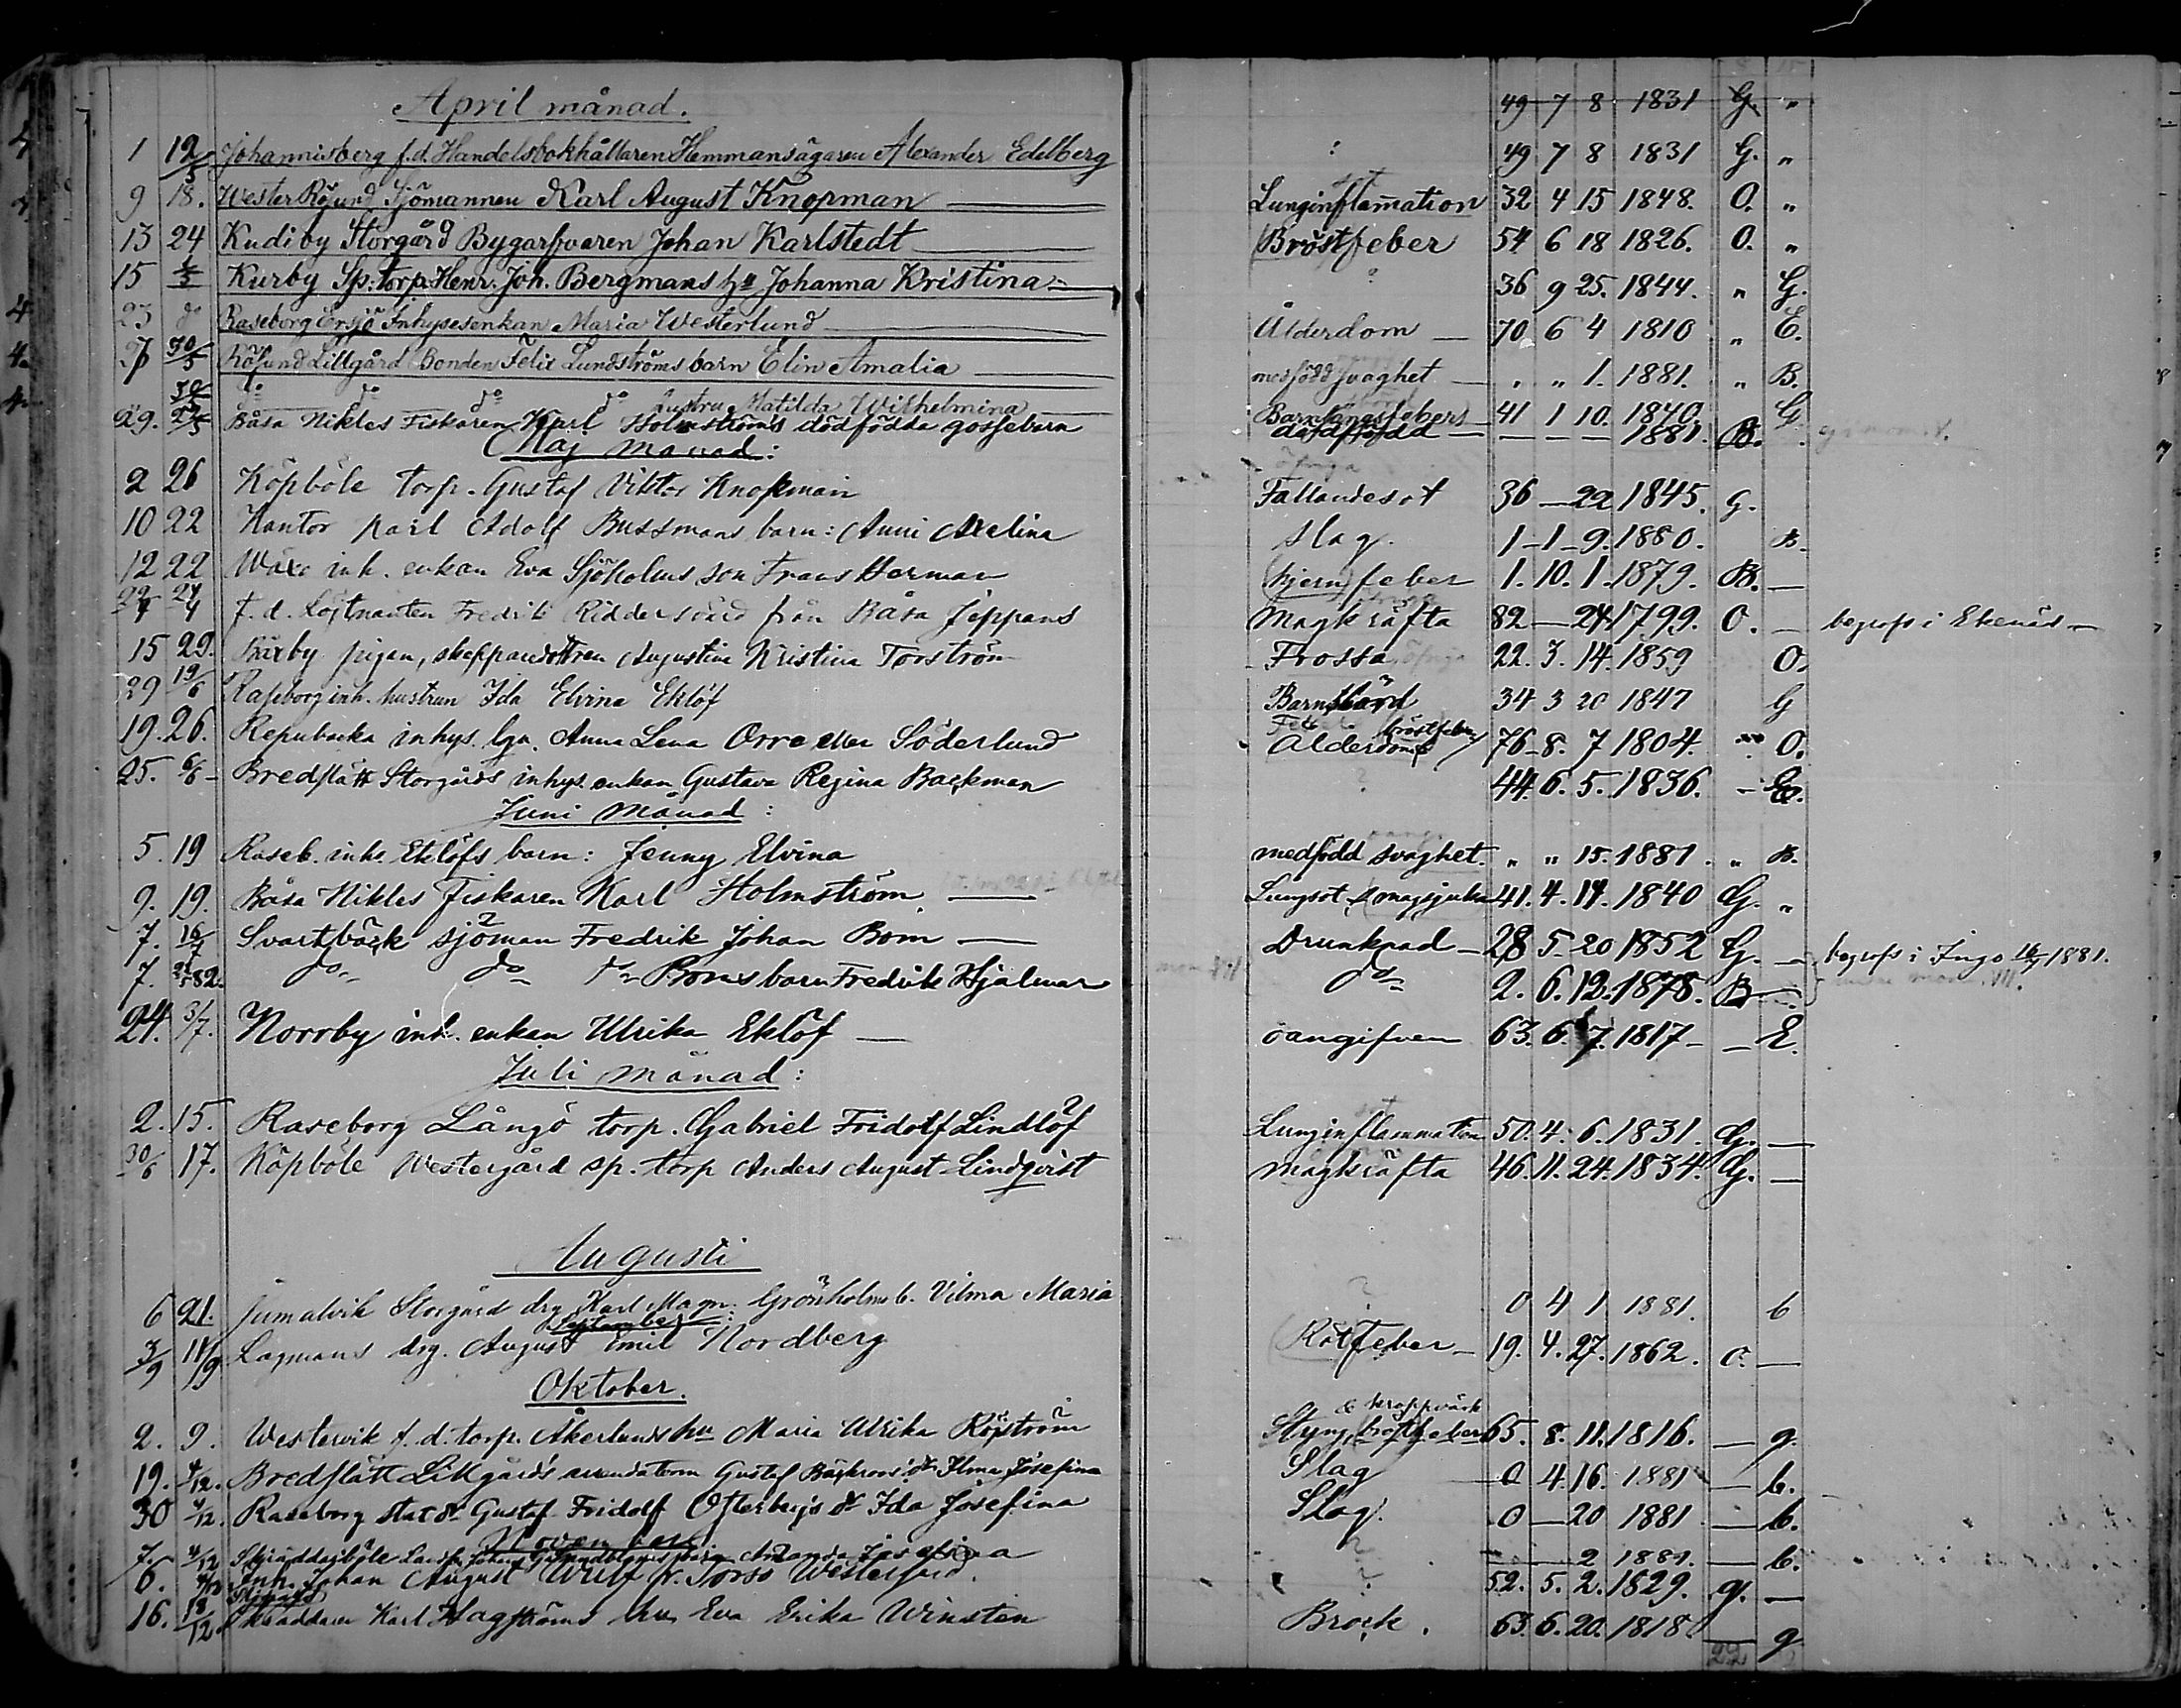 April månad.
49 7 8 1831 G. „
1 12/5 Johannisberg f.d. Handelsbokhållaren Hemmansägaren Alexander Edelberg : 49 7 8 1831 G. „
9 18. Wester Röjund Sjömannen Karl August Knopman — Lunginflammation sot 32 4 15 1848. O. „
13 24 Kudiby Storgård Bygarfvaren Johan Karlstedt — Bröstfeber 54 6 18 1826. O. „
15 Kurby Sp: torp: Henr. Joh. Bergmans hu Johanna Kristina — 36 9 25. 1844. „ G.
23 do Raseborg Ersjö Inhysesenkan Maria Westerlund — Ålderdom — 70 6 4 1810 „ E.
30/5 Röjund Lillgård Bonden Felix Lundströms barn Elin Amalia — medfödd svaghet — „ „ 1. 1881. „ B.
30 do do do do hustru Matilda Wilhelmina — Barnsängsfeber — 41 1 10. 1840. G
29. Båsa Nikles Fiskaren Karl Holmströms dödfödda gossebarn dödfödd — — — — 1881. B.
Maj månad:
2 26 Köpböle torp. Gustaf Viktor Knopman Fallandesot 36 — 22 1845. G.
10 22 Kantor Karl Adolf Bussmans barn: Anni Avelina Slag. 1 — 1 — 9. 1880. B.
12 22 Wäxo inh. enkan Eva Sjöholms son Frans Herman hjernfeber 1. 10. 1. 1879. B. —
22/4 24/4 F. d. Löjtnanten Fredrik Riddersvärd från Båsa Jeppans Magkräfta 82 — 24 1799. O. — begrofs i Ekenäs —
15 29. Bäxby pigan, skeppardottren Augustina Kristina Torström Frossa öfriga 22. 3. 14. 1859 O.
29 19/6 Raseborg inh. hustrun Ida Elvina Eklöf Barnsbörd 34 3 20 1847 G
19. 26. Repubacka inhys. hjn. Anna Lena Orre eller Söderlund Ålderdom bröstfeber 76 — 8. 7 1804. O.
25. 6/6 — Bredslätt Storgårds inhys. enkan Gustava Regina Backman ? 44. 6. 5. 1836. — E.
Juni Månad:
5. 19 Raseb. inhs. Eklöfs barn: Jenny Elvina medfödd svaghet. „ „ 15. 1881. „ B.
9. 19. Båsa Nikles Fiskaren Karl Holmström — Lungsot & magsjuka 41. 4. 14. 1840 G. „
7. 16/7 Svartbäck sjöman Fredrik Johan Bom — Drunknad — 28 5 — 20 1852 G. — begrofs i Ingo 16/7 1881.
7. 82. do do do Boms barn Fredrik Hjalmar do 2. 6. 12. 1878. B —
24. 3/7. Norrby inh. enkan Ulrika Eklöf — oangifven 63. 6. 7. 1817 — — E.
Juli månad:
2. 15. Raseborg Långö torp. Gabriel Fridolf Lindlöf Lunginflammation sot 50. 4. 6. 1831. G. —
30/6 17. Köpböle Westergård sp. torp Anders August Lindqvist magkräfta 46. 11. 24. 1834. G. —
Augusti
6 21. Jumalvik Storgård drg Karl Magn: Grönholms b. Vilma Maria ? 0 4 1 1881. b
September:
3/9 11/9 Lagmans drg. August Emil Nordberg Rötfeber — 19. 4. 27. 1862. O. —
Oktober.
2. 9. Westervik f. d. torp. Åkerlunds hu Maria Ulrika Röjström Styng, bröstfeber & kroppvärk 65. 8. 11. 1816. — g.
19. 4/12. Bredslätt Lillgårds arrendatorn Gustaf Bäckroos' dr Ilma Josefina Slag — 0 4. 16. 1881 — b.
30 4/12. Raseborg stat dr Gustaf Fridolf Österbergs dr Ida Josefina Slag. 0 — 20 1881 — b.
November
7. 4/12 Skräddarböle Amanda Josefina ? — — 2 1881. — b.
6. 4/12 Inh. Johan August Wulf fr. Torsö Westergård. ? 52. 5. 2. 1829. g. —
16. 18/12. Skräddaren Karl Hagströms hu Eva Erika Winsten Brock. 63. 6. 20. 1818. — g
22